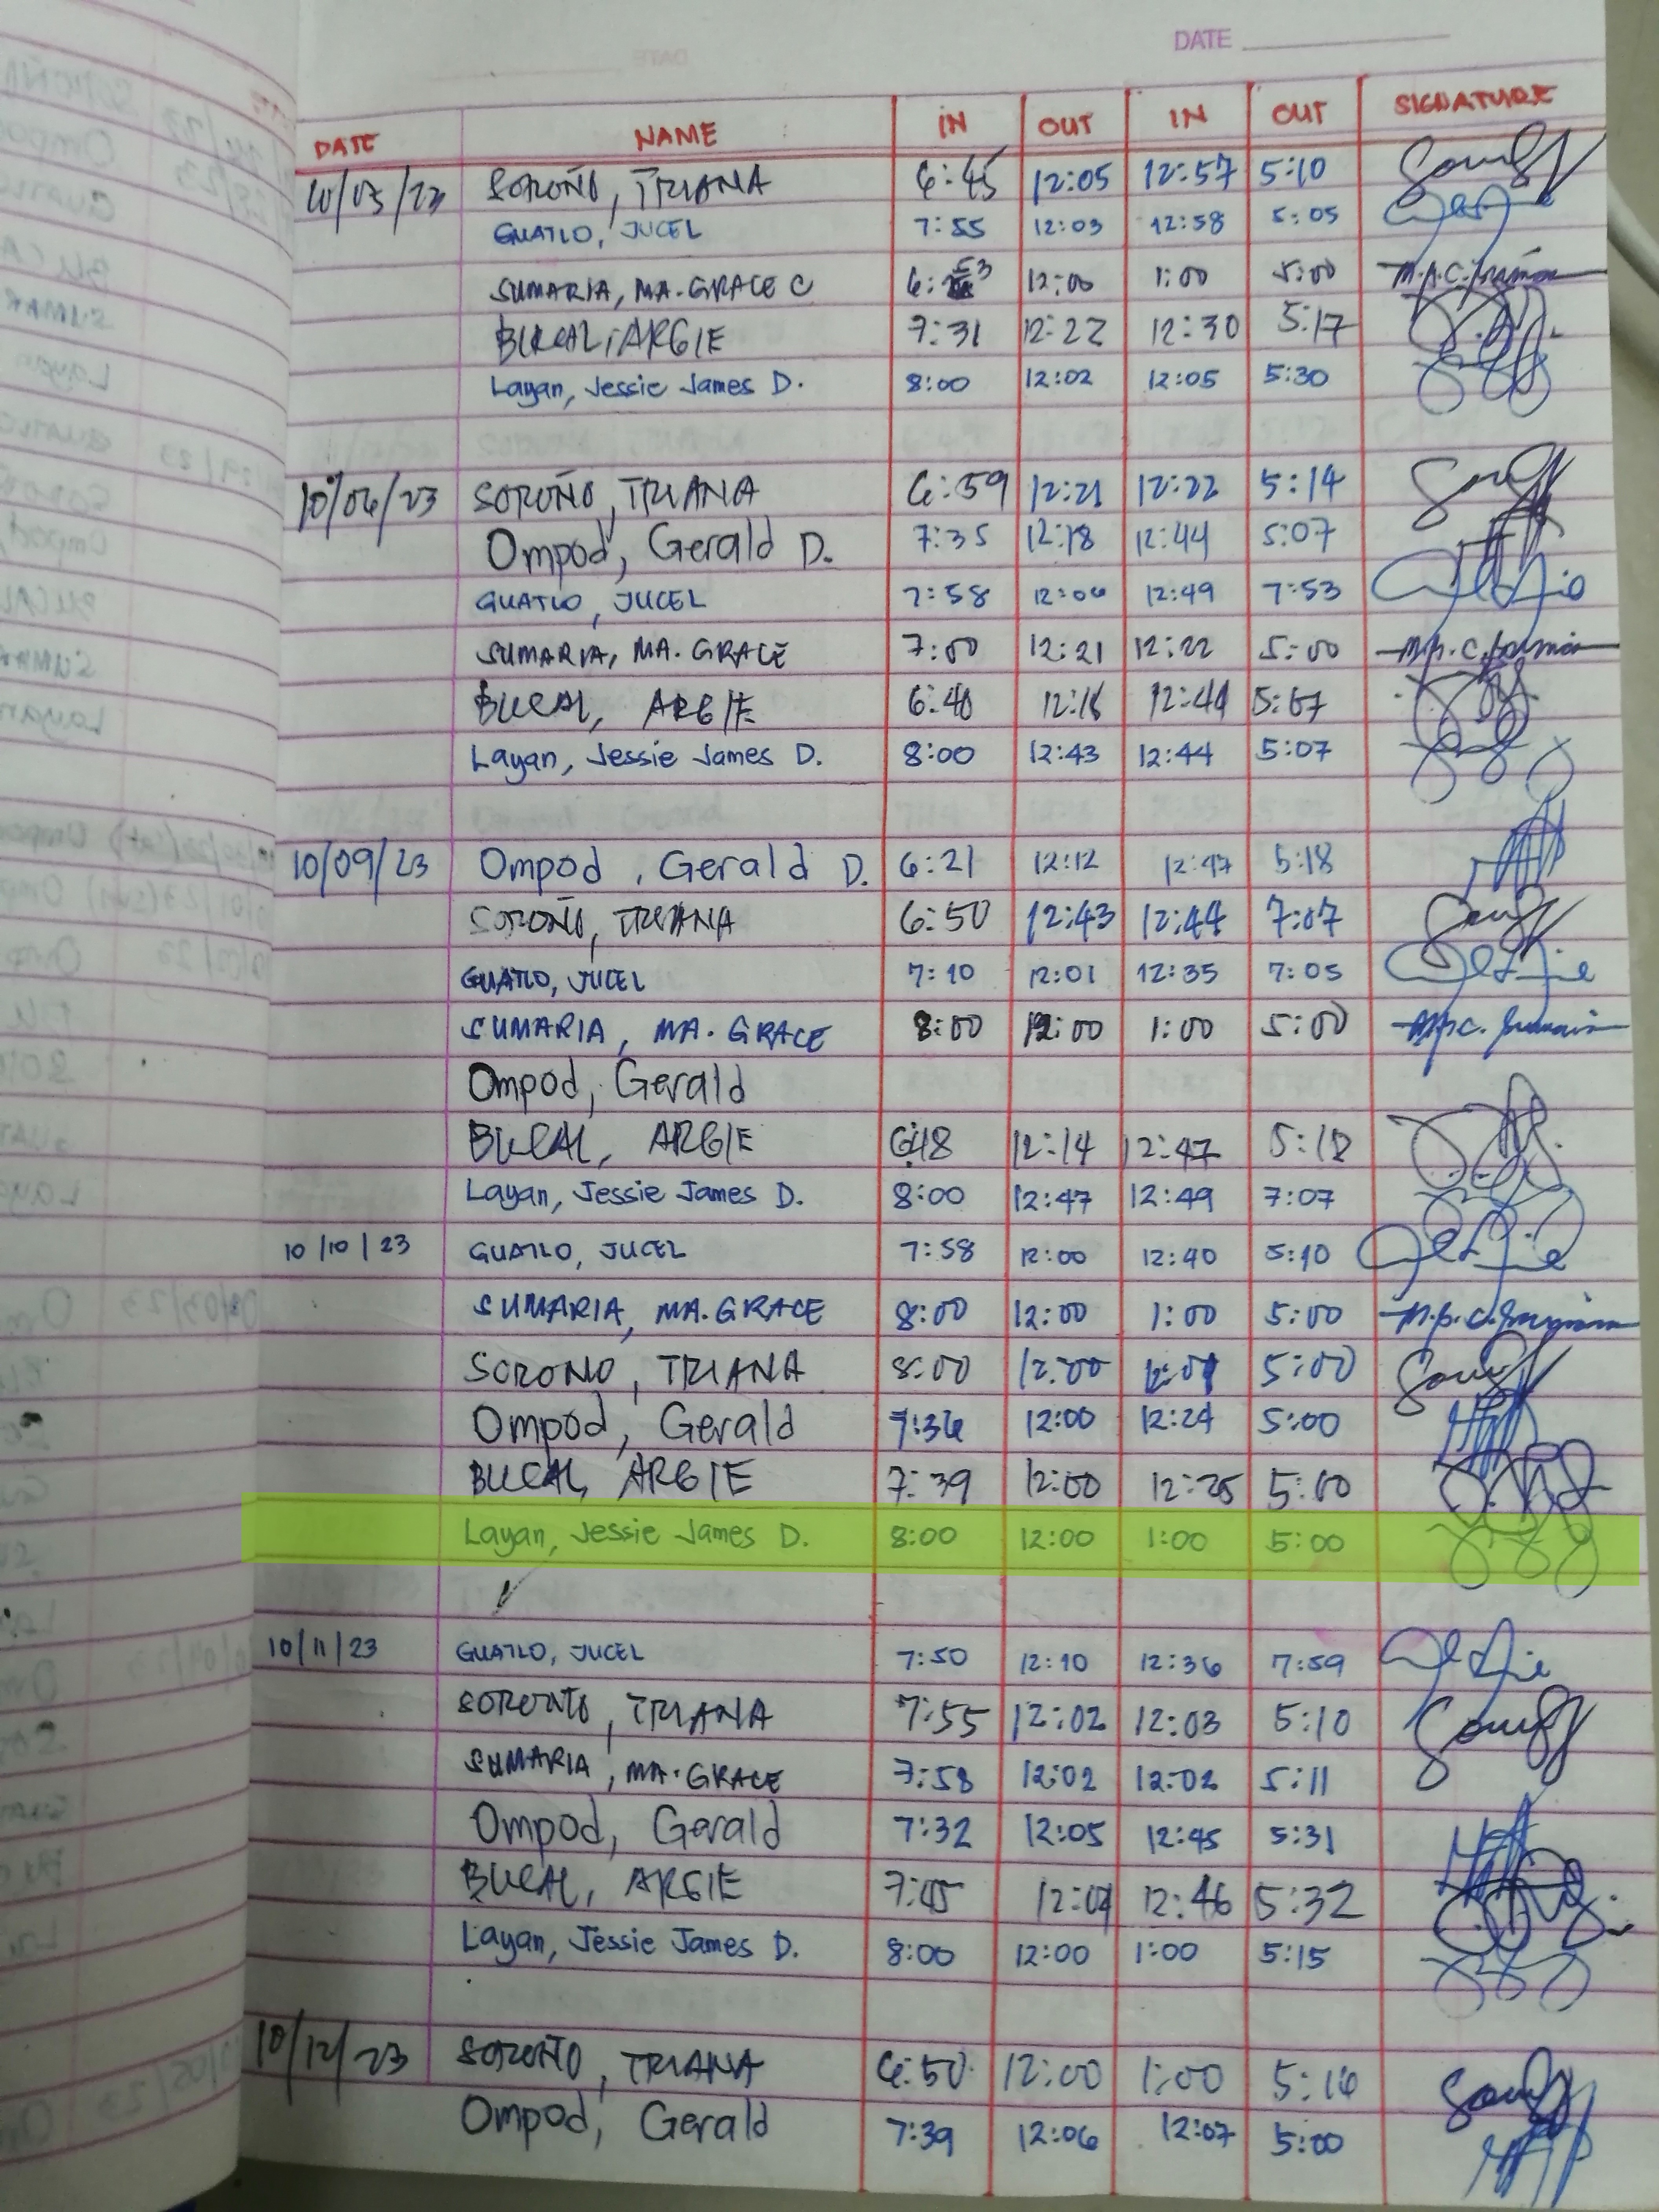 DATE
DATE NAME IN OUT IN OUT SIGNATURE
10/03/23 SOROÑO, TRIANA 6:45 12:05 12:57 5:10
GUATLO, JUCEL 7:55 12:03 12:58 5:05
SUMARIA, MA. GRACE C 6:53 12:00 1:00 5:00
BUCAL, ARGIE 7:31 12:22 12:30 5:17
Layan, Jessie James D. 8:00 12:02 12:05 5:30
10/06/23 SOROÑO, TRIANA 6:59 12:21 12:22 5:14
Ompod, Gerald D. 7:35 12:18 12:44 5:07
GUATLO, JUCEL 7:58 12:06 12:49 7:53
SUMARIA, MA. GRACE 7:00 12:21 12:22 5:00
BUCAL, ARGIE 6:40 12:18 12:44 5:07
Layan, Jessie James D. 8:00 12:43 12:44 5:07
10/09/23 Ompod, Gerald D. 6:21 12:12 12:47 5:18
SOROÑO, TRIANA 6:50 12:43 12:44 7:07
GUATLO, JUCEL 7:10 12:01 12:35 7:05
SUMARIA, MA. GRACE 8:00 12:00 1:00 5:00
Ompod, Gerald
BUCAL, ARGIE 6:18 12:14 12:47 5:18
Layan, Jessie James D. 8:00 12:47 12:49 7:07
10/10/23 GUATLO, JUCEL 7:58 12:00 12:40 5:10
SUMARIA, MA. GRACE 8:00 12:00 1:00 5:00
SOROÑO, TRIANA 8:00 12:00 5:00
Ompod, Gerald 7:36 12:00 12:24 5:00
BUCAL, ARGIE 7:39 12:00 12:25 5:00
Layan, Jessie James D. 8:00 12:00 1:00 5:00
10/11/23 GUATLO, JUCEL 7:50 12:10 12:36 7:59
SOROÑO, TRIANA 7:55 12:02 12:03 5:10
SUMARIA, MA. GRACE 7:58 12:02 12:02 5:11
Ompod, Gerald 7:32 12:05 12:45 5:31
BUCAL, ARGIE 7:45 12:04 12:46 5:32
Layan, Jessie James D. 8:00 12:00 1:00 5:15
10/12/23 SOROÑO, TRIANA 6:50 12:00 1:00 5:16
Ompod, Gerald 7:39 12:06 12:07 5:00